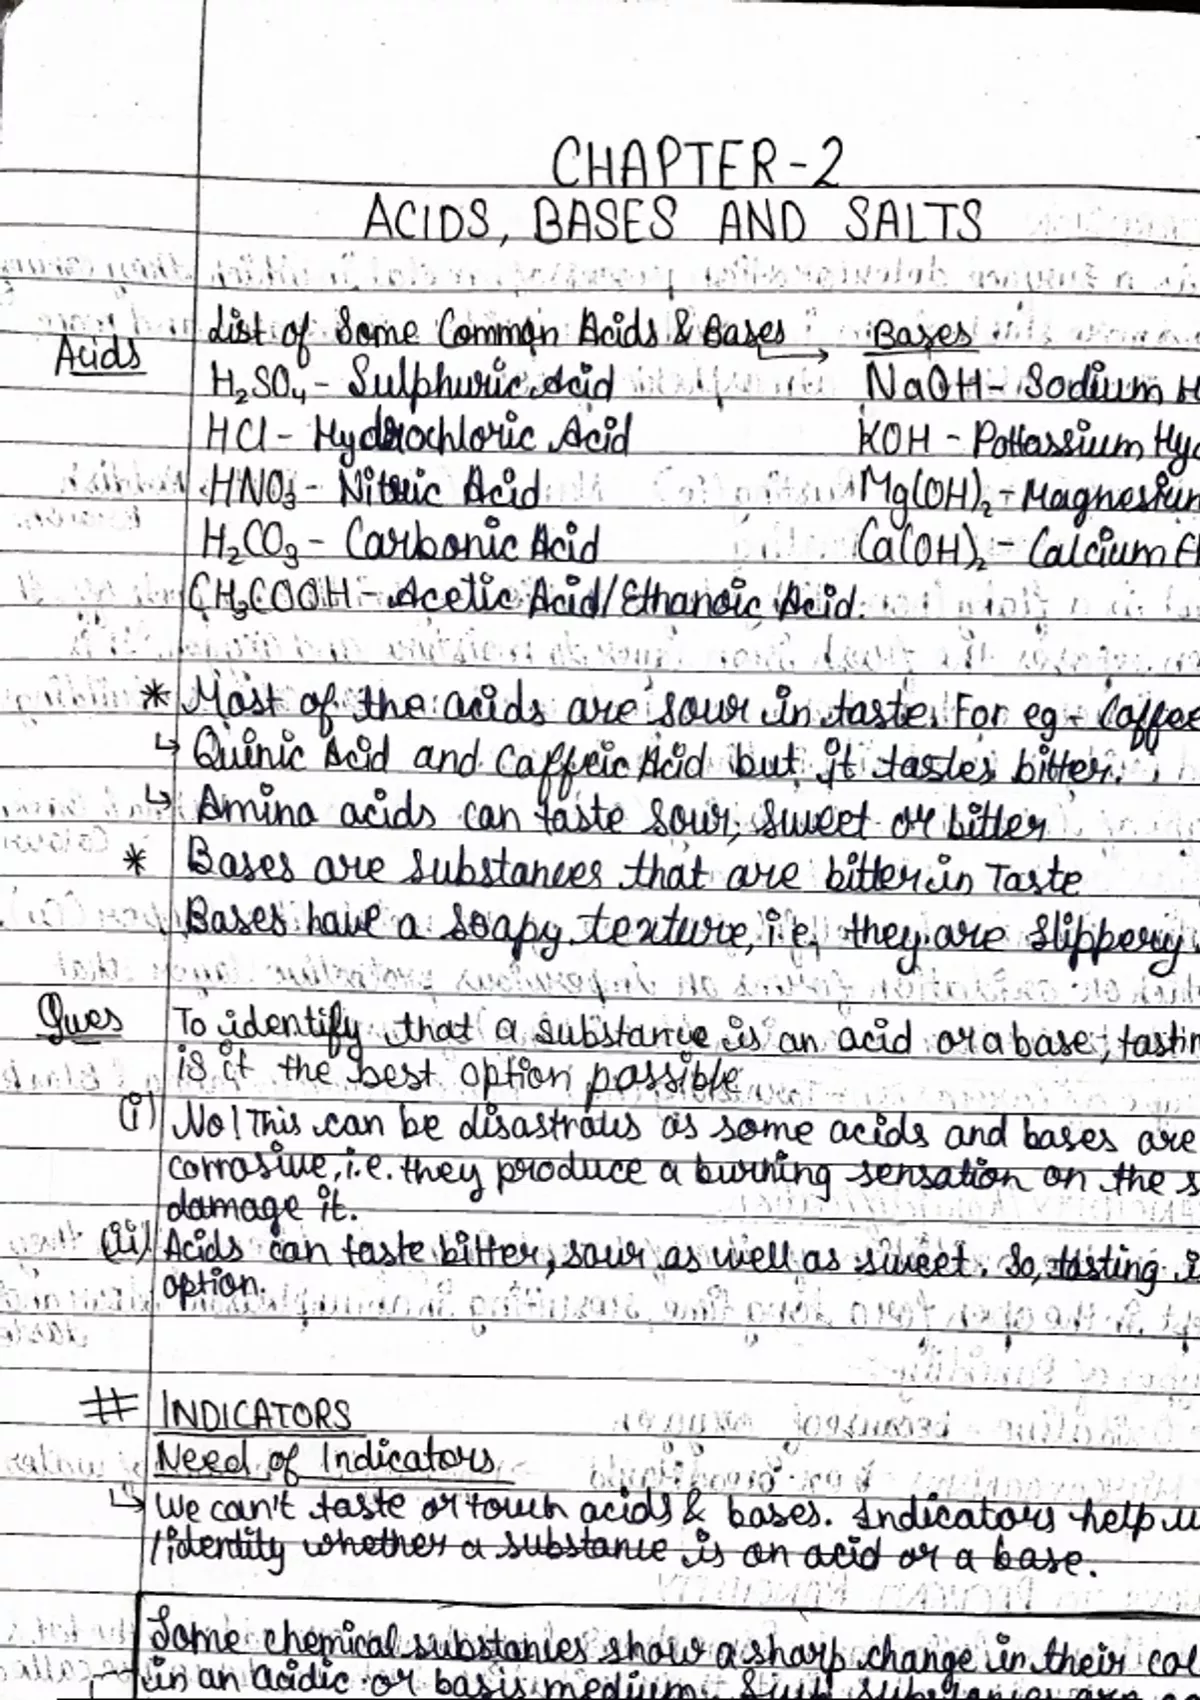 CHAPTER-2
ACIDS, BASES AND SALTS
List of Some Common Acids & Bases → Bases
Acids
H₂SO₄ - Sulphuric Acid NaOH - Sodium H
HCl - Hydrochloric Acid KOH - Pottassium Hyd
HNO₃ - Nitric Acid Mg(OH)₂ - Magnesium
H₂CO₃ - Carbonic Acid Ca(OH)₂ - Calcium H
CH₃COOH - Acetic Acid/Ethanoic Acid.
* Most of the acids are sour in taste. For eg - Coffee
↳ Quinic Acid and Caffeic Acid but it tastes bitter.
↳ Amino acids can taste sour, sweet or bitter
* Bases are substances that are bitter in Taste
Bases have a soapy texture, i.e, they are slippery.
Ques To identify that a substance is an acid or a base, tastin
is it the best option possible
(i) No! This can be disastrous as some acids and bases are
corrosive, i.e. they produce a burning sensation on the s
damage it.
(ii) Acids can taste bitter, sour as well as sweet. So, tasting i
option.
# INDICATORS
Need of Indicators
↳ We can't taste or touch acids & bases. Indicators help u
/identity whether a substance is an acid or a base.
Some chemical substances show a sharp change in their col
in an acidic or basis medium. Such substances are